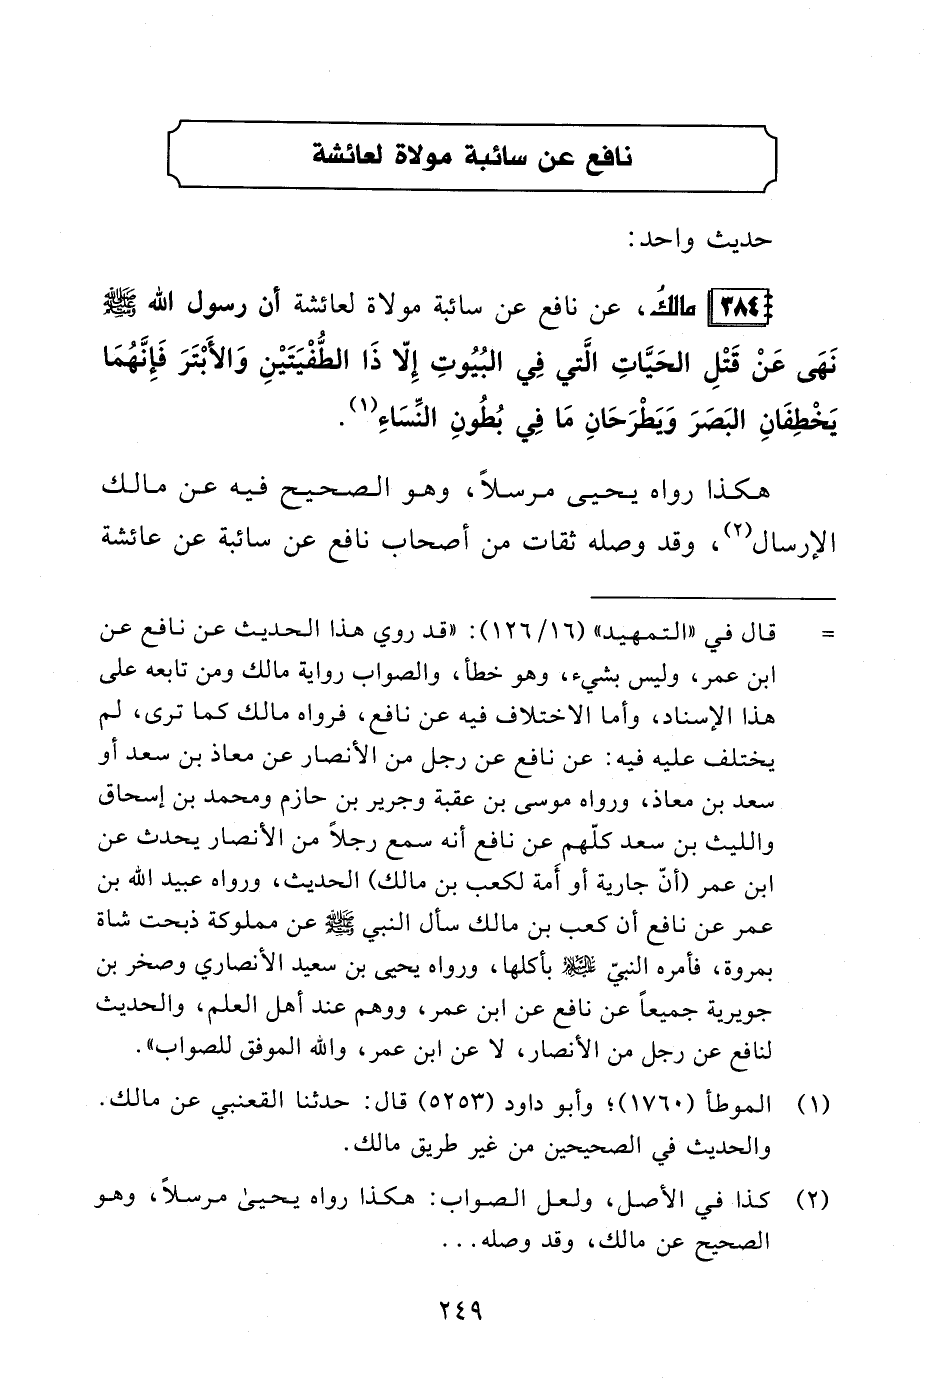 نافع عن سائبة مولاة لعائشة
حديث واحد:
٣٨٤ مالكُ، عن نافع عن سائبة مولاة لعائشة أن رسول الله ﷺ
نَهَى عَنْ قَتْلِ الحَيَّاتِ الَّتي فِي البُيُوتِ إِلّا ذَا الطُّفْيَتَيْنِ وَالأَبْتَرَ فَإِنَّهُمَا
يَخْطِفَانِ البَصَرَ وَيَطْرَحَانِ مَا فِي بُطُونِ النِّسَاءِ(١).
هكذا رواه يحيى مرسلاً، وهو الصحيح فيه عن مالك
الإرسال(٢)، وقد وصله ثقات من أصحاب نافع عن سائبة عن عائشة
= قال في «التمهيد» (١٢٦/١٦): «قد روي هذا الحديث عن نافع عن
ابن عمر، وليس بشيء، وهو خطأ، والصواب رواية مالك ومن تابعه على
هذا الإسناد، وأما الاختلاف فيه عن نافع، فرواه مالك كما ترى، لم
يختلف عليه فيه: عن نافع عن رجل من الأنصار عن معاذ بن سعد أو
سعد بن معاذ، ورواه موسى بن عقبة وجرير بن حازم ومحمد بن إسحاق
والليث بن سعد كلّهم عن نافع أنه سمع رجلاً من الأنصار يحدث عن
ابن عمر (أنّ جارية أو أَمة لكعب بن مالك) الحديث، ورواه عبيد الله بن
عمر عن نافع أن كعب بن مالك سأل النبي ﷺ عن مملوكة ذبحت شاة
بمروة، فأمره النبيّ ﷺ بأكلها، ورواه يحيى بن سعيد الأنصاري وصخر بن
جويرية جميعاً عن نافع عن ابن عمر، ووهم عند أهل العلم، والحديث
لنافع عن رجل من الأنصار، لا عن ابن عمر، والله الموفق للصواب».
(١) الموطأ (١٧٦٠)؛ وأبو داود (٥٢٥٣) قال: حدثنا القعنبي عن مالك.
والحديث في الصحيحين من غير طريق مالك.
(٢) كذا في الأصل، ولعل الصواب: هكذا رواه يحيىٰ مرسلاً، وهو
الصحيح عن مالك، وقد وصله...
٢٤٩